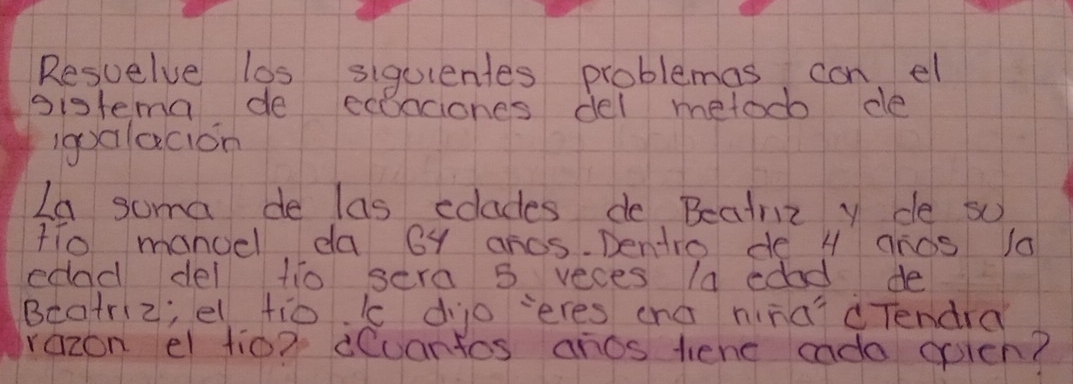 Resuelve los siguientes problemas con el
sistema de ecuaciones del metodo de
igualación
La suma de las edades de Beatriz y de su
tio manuel da 64 años. Dentro de 4 años la
edad del tio sera 5 veces la edad de
Beatriz; el tio le dijo "eres una niña" ¿Tendra
razon el tio? ¿Cuantos años tiene cada quien?